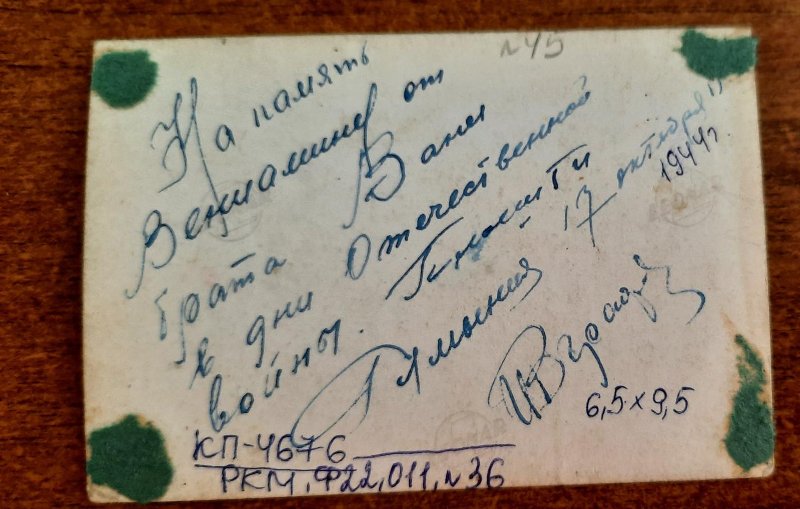 №45
На память
Вениамину от
брата Вани
в дни Отечественной
войны. Плоешти
Румыния - 17 октября"
1944 г.
6,5 × 9,5
КП-4676
РКМ, Ф22, 011, №36